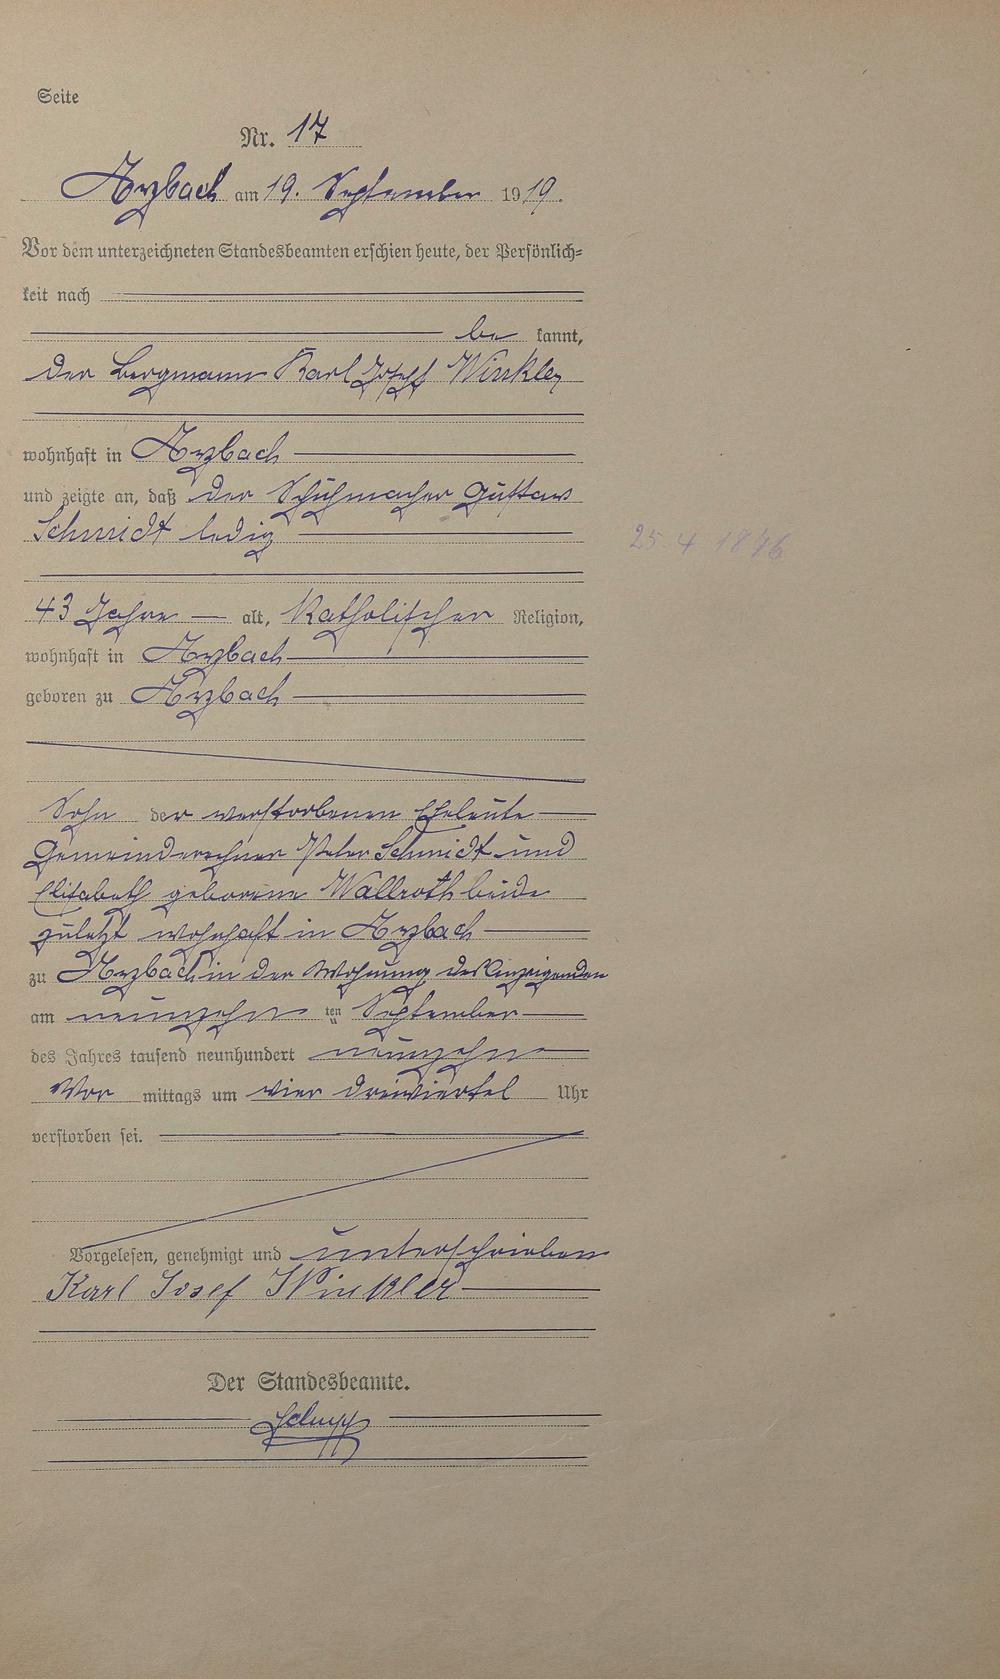 Seite
Nr. 17
Arzbach am 19. September 1919.
Vor dem unterzeichneten Standesbeamten erschien heute, der Persönlich-
keit nach
be kannt,
der Bergmann Karl Joseph Winkler
wohnhaft in Arzbach
und zeigte an, daß der Schuhmacher Gustav
Schmidt ledig
25. 4 1876
43 Jahre alt, Katholischer Religion,
wohnhaft in Arzbach
geboren zu Arzbach
Sohn der verstorbenen Eheleute
Gemeinderechner Peter Schmidt und
Elisabeth geborene Wallroth beide
zuletzt wohnhaft in Arzbach
zu Arzbach in der Wohnung des Anzeigenden
am neunzehn ten September
des Jahres tausend neunhundert neunzehn
Vor mittags um vier dreiviertel Uhr
verstorben sei.
Vorgelesen, genehmigt und unterschrieben
Karl Josef Winkler
Der Standesbeamte.